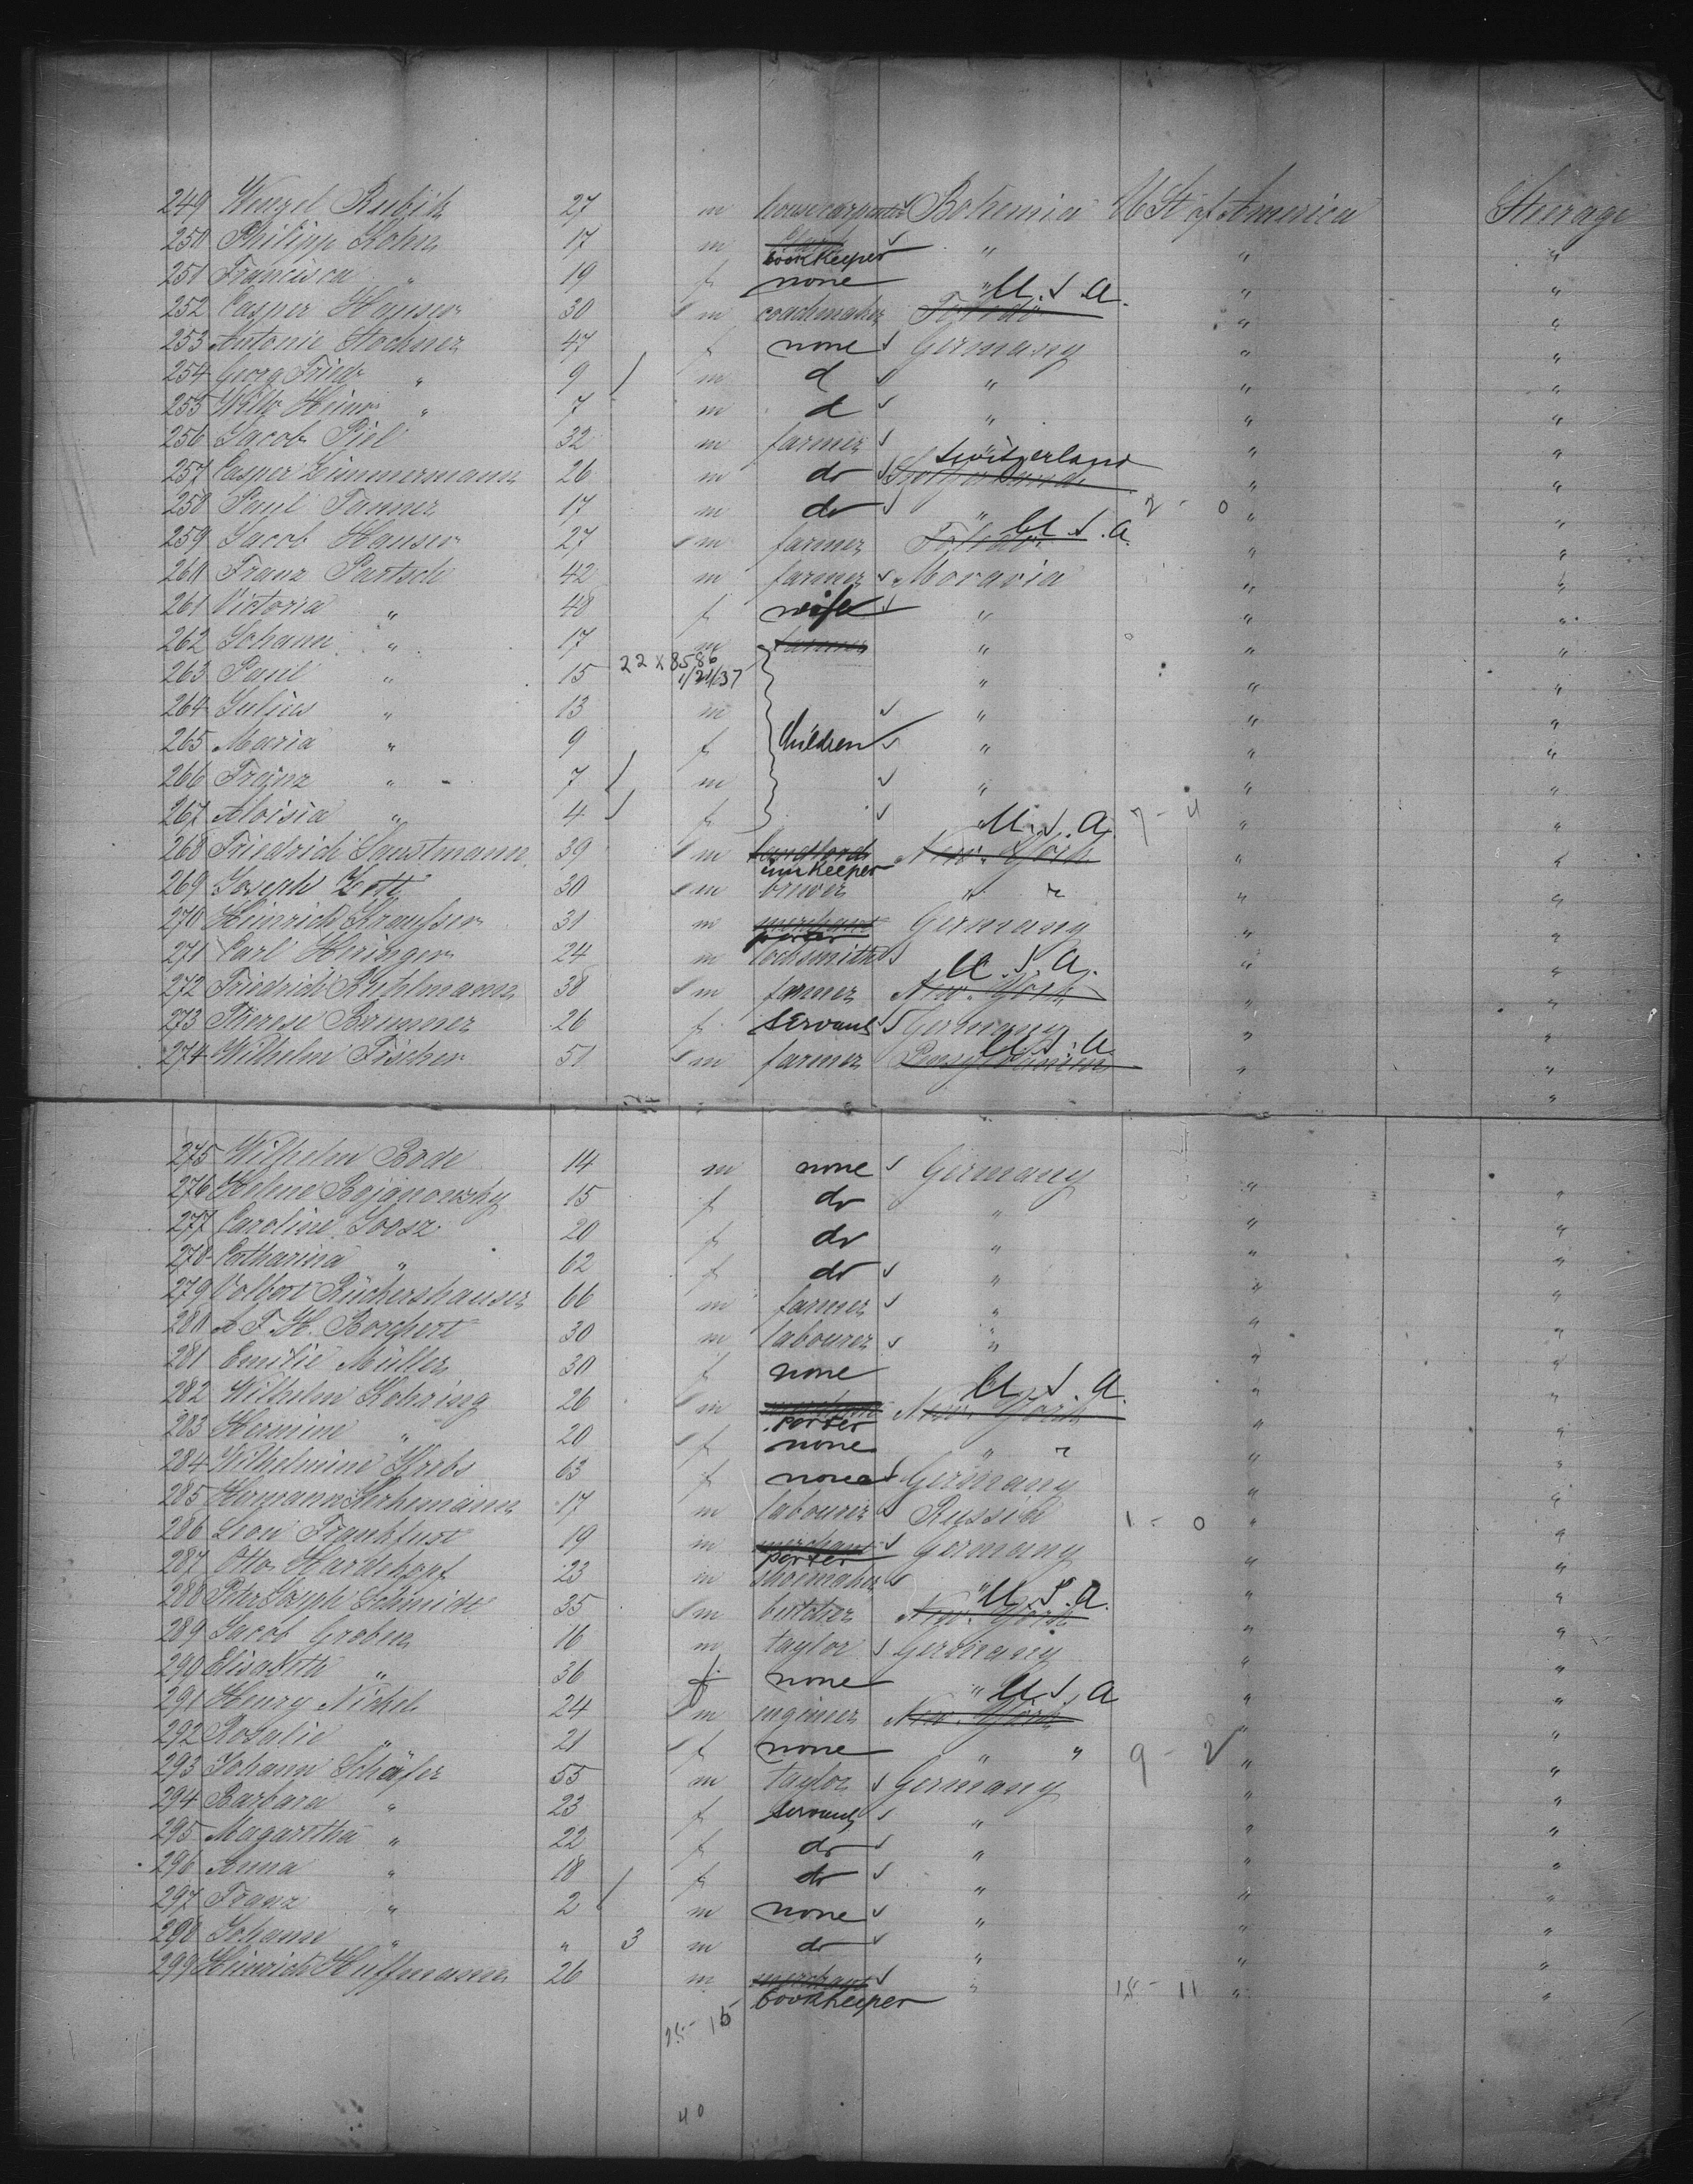 249 Wenzel Rubik 27 m housecarpenter Bohemia U St of America Steerage
250 Philipp Kohn 17 m bookkeeper " " "
251 Francisca " 19 f none " " "
252 Casper Hauser 30 m coachmaker Toledo U.S.A. " "
253 Antonie Stochner 47 f none Germany " "
254 Georg Friedr " 9 m d " " "
255 Wilh Heinr " 7 m d " " "
256 Jacob Piel 32 m farmer " " "
257 Casper Zimmermann 26 m do Switzerland " "
258 Paul Tanner 17 m do " 2 - 0 " "
259 Jacob Hauser 27 m farmer Toledo U.S.A. " "
260 Franz Partsch 42 m farmer Moravia " "
261 Victoria " 48 f wife " " "
262 Johann " 17 m farmer " " "
263 Paul " 15 22 X 8586 1/21/37 " " "
264 Julius " 13 m " " "
265 Maria " 9 f Children " " "
266 Franz " 7 m " " "
267 Aloisia " 4 f " 7 - 4 " "
268 Friedrich Saustmann 39 m landlord innkeeper New York U.S.A. " "
269 Joseph Zott 30 m brewer " " " "
270 Heinrich 31 m merchant porter Germany " "
271 Carl Heringer 24 m locksmith " "
272 Friedrich Kuhlmann 38 m farmer New York U.S.A. " "
273 Therese Brunner 26 f servant Germany " "
274 Wilhelm Fischer 51 m farmer U.S.A. " "
275 Wilhelm Bode 14 m none Germany
276 Helene Bojanowsky 15 f do " " "
277 Caroline Joosz 20 f do " " "
278 Catharina " 62 f do " " "
279 Volbert Rückershauser 66 m farmer " " "
280 A. F. H. Borchert 30 m labourer " " "
281 Emilie Müller 30 f none " "
282 Wilhelm Kohring 26 m porter New York U.S.A. " "
283 Hermine " 20 f none " " " "
284 Wilhelmine Krebs 63 f none Germany " "
285 Hermann 17 m labourer Russia " "
286 Leon Frankfurt 19 m merchant porter Germany 1 - 0 " "
287 Otto Hardekopf 23 m shoemaker " " "
288 Peter Joseph Schmidt 35 m butcher New York U.S.A. " "
289 Jacob Graben 16 m taylor Germany " "
290 Elisabeth " 36 f none " " "
291 Henry Nickel 24 m enginer New York U.S.A " "
292 Rosalie " 21 f none " " 9 - 2 " "
293 Johann Schäfer 55 m taylor Germany " "
294 Barbara " 23 f servant " " "
295 Magaretha " 22 f do " " "
296 Anna " 18 f do " " "
297 Franz " 2 m none " " "
298 Johann " " 3 m do " " "
299 Heinrich Hüffmann 26 m merchant bookkeeper " 15 - 11 " "
25 - 15
40